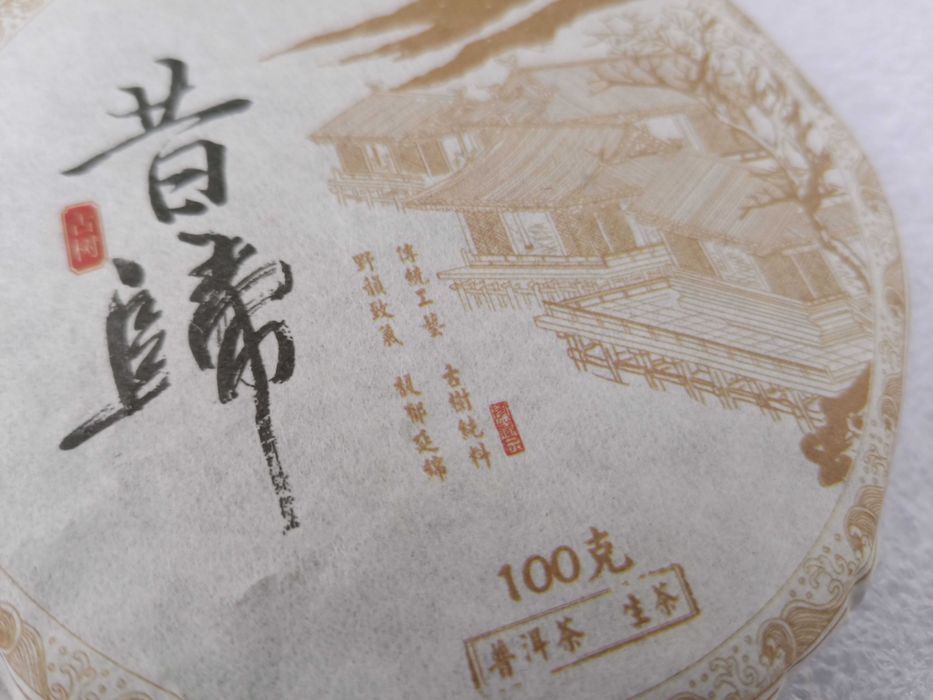 昔歸
古树
傳統工藝 古樹純料
野韻致氣 馥郁延綿
100克
普洱茶 生茶